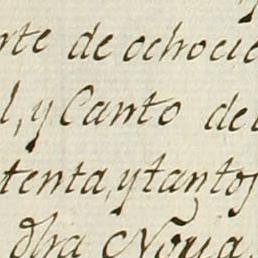 rte de ochocie
l, y Canto de
tenta, y tantos
dha Novia,